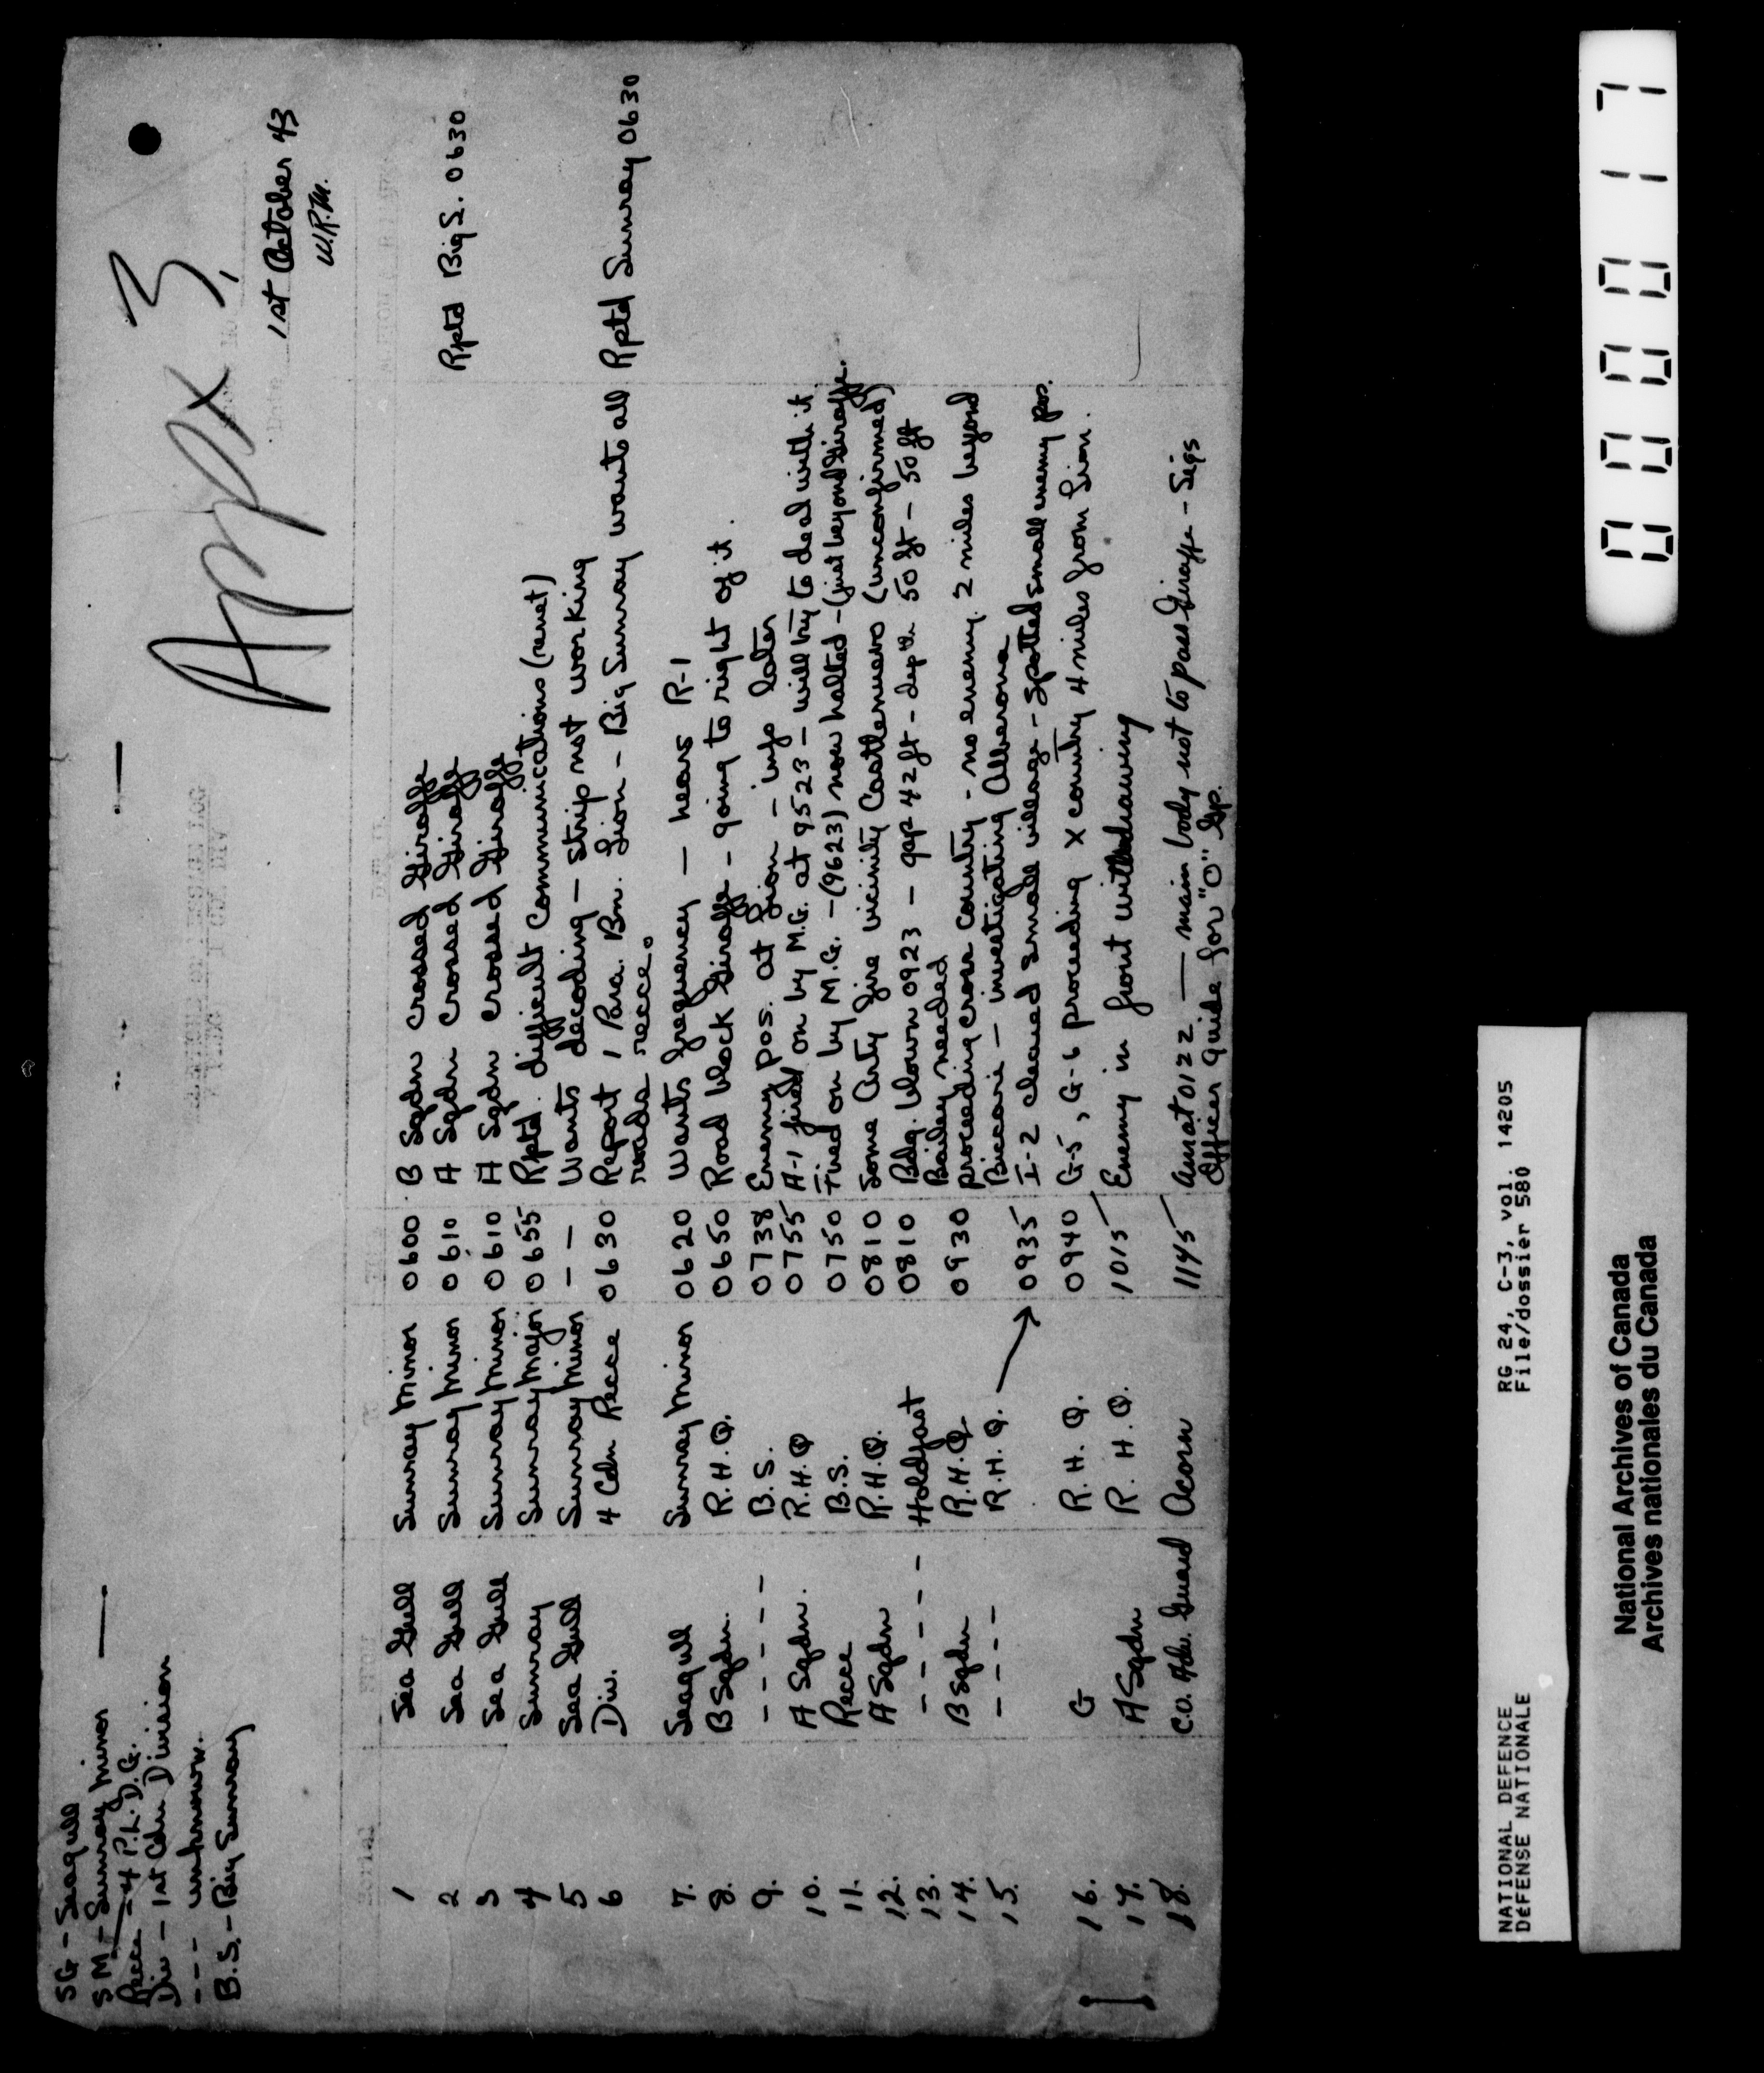 SG - Seagull
SM - Sunray Minor
Recce - 4 P.L.D.G.
Div - 1st Cdn Division
--- unknown.
B.S. - Big Sunray
Appx 3,
1st October 43
W.R.M.
1 Sea Gull Sunray Minor 0600 B Sqdn crossed Giraffe
2 Sea Gull Sunray Minor 0610 A Sqdn crossed Giraffe Rptd Big S. 0630
3 Sea Gull Sunray Minor 0610 A Sqdn crossed Giraffe
4 Sunray Sunray Major 0655 Rptd. difficult Communications (renet)
5 Sea Gull Sunray Minor - - Wants decoding - strip not working
6 Div. 4 Cdn Recce 0630 Report 1 Para. Bn. Lion - Big Sunray wants all Rptd Sunray 0630
roads recce.
7. Seagull Sunray Minor 0620 Wants frequency - hears R-1
8. B Sqdn. R.H.Q. 0650 Road block Giraffe - going to right of it.
9. - - - - - B.S. 0738 Enemy pos. at Lion - info later
10. A Sqdn. R.H.Q 0755 A-1 fired on by M.G. at 9523 - will try to deal with it
11. Recce B.S. 0750 Fired on by M.G. - (9623) now halted - (just beyond Giraffe.
12. A Sqdn R.H.Q. 0810 Some Arty fire vicinity Castlenuevo (unconfirmed)
13. - - - - - Holdfast 0810 Bdg. blown 0923 - gap 42 ft - depth 50 ft - 50 ft
Bailey needed
14. B Sqdn R.H.Q. 0930 proceeding cross country - no enemy. 2 miles beyond
Biccari - investigating Alberona
15. - - - - R.H.Q. → 0935 I-2 cleared small village - spotted small enemy pos.
16. G R. H. Q. 0940 G-5, G-6 proceeding X country 4 miles from Lion.
17. A Sqdn R. H. Q. 1015 Enemy in front withdrawing
18. C.O. Adv. Guard Acorn 1145 Am at 0122 - main body not to pass Giraffe - Sigs
Officer guide for "O" Gp.
0000017
NATIONAL DEFENCE RG 24, C-3, vol. 14205
DÉFENSE NATIONALE File/dossier 580
National Archives of Canada
Archives nationales du Canada